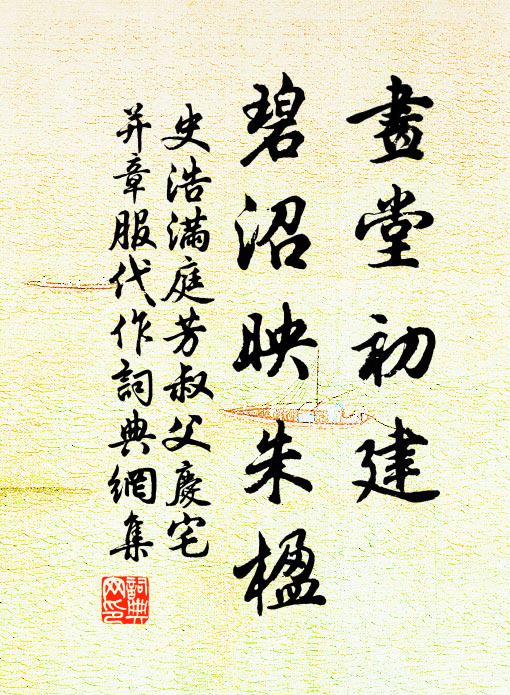 畫堂初建
碧沼映朱楹
史浩滿庭芳叔父慶宅
并章服代作詞典網集
詞典網印